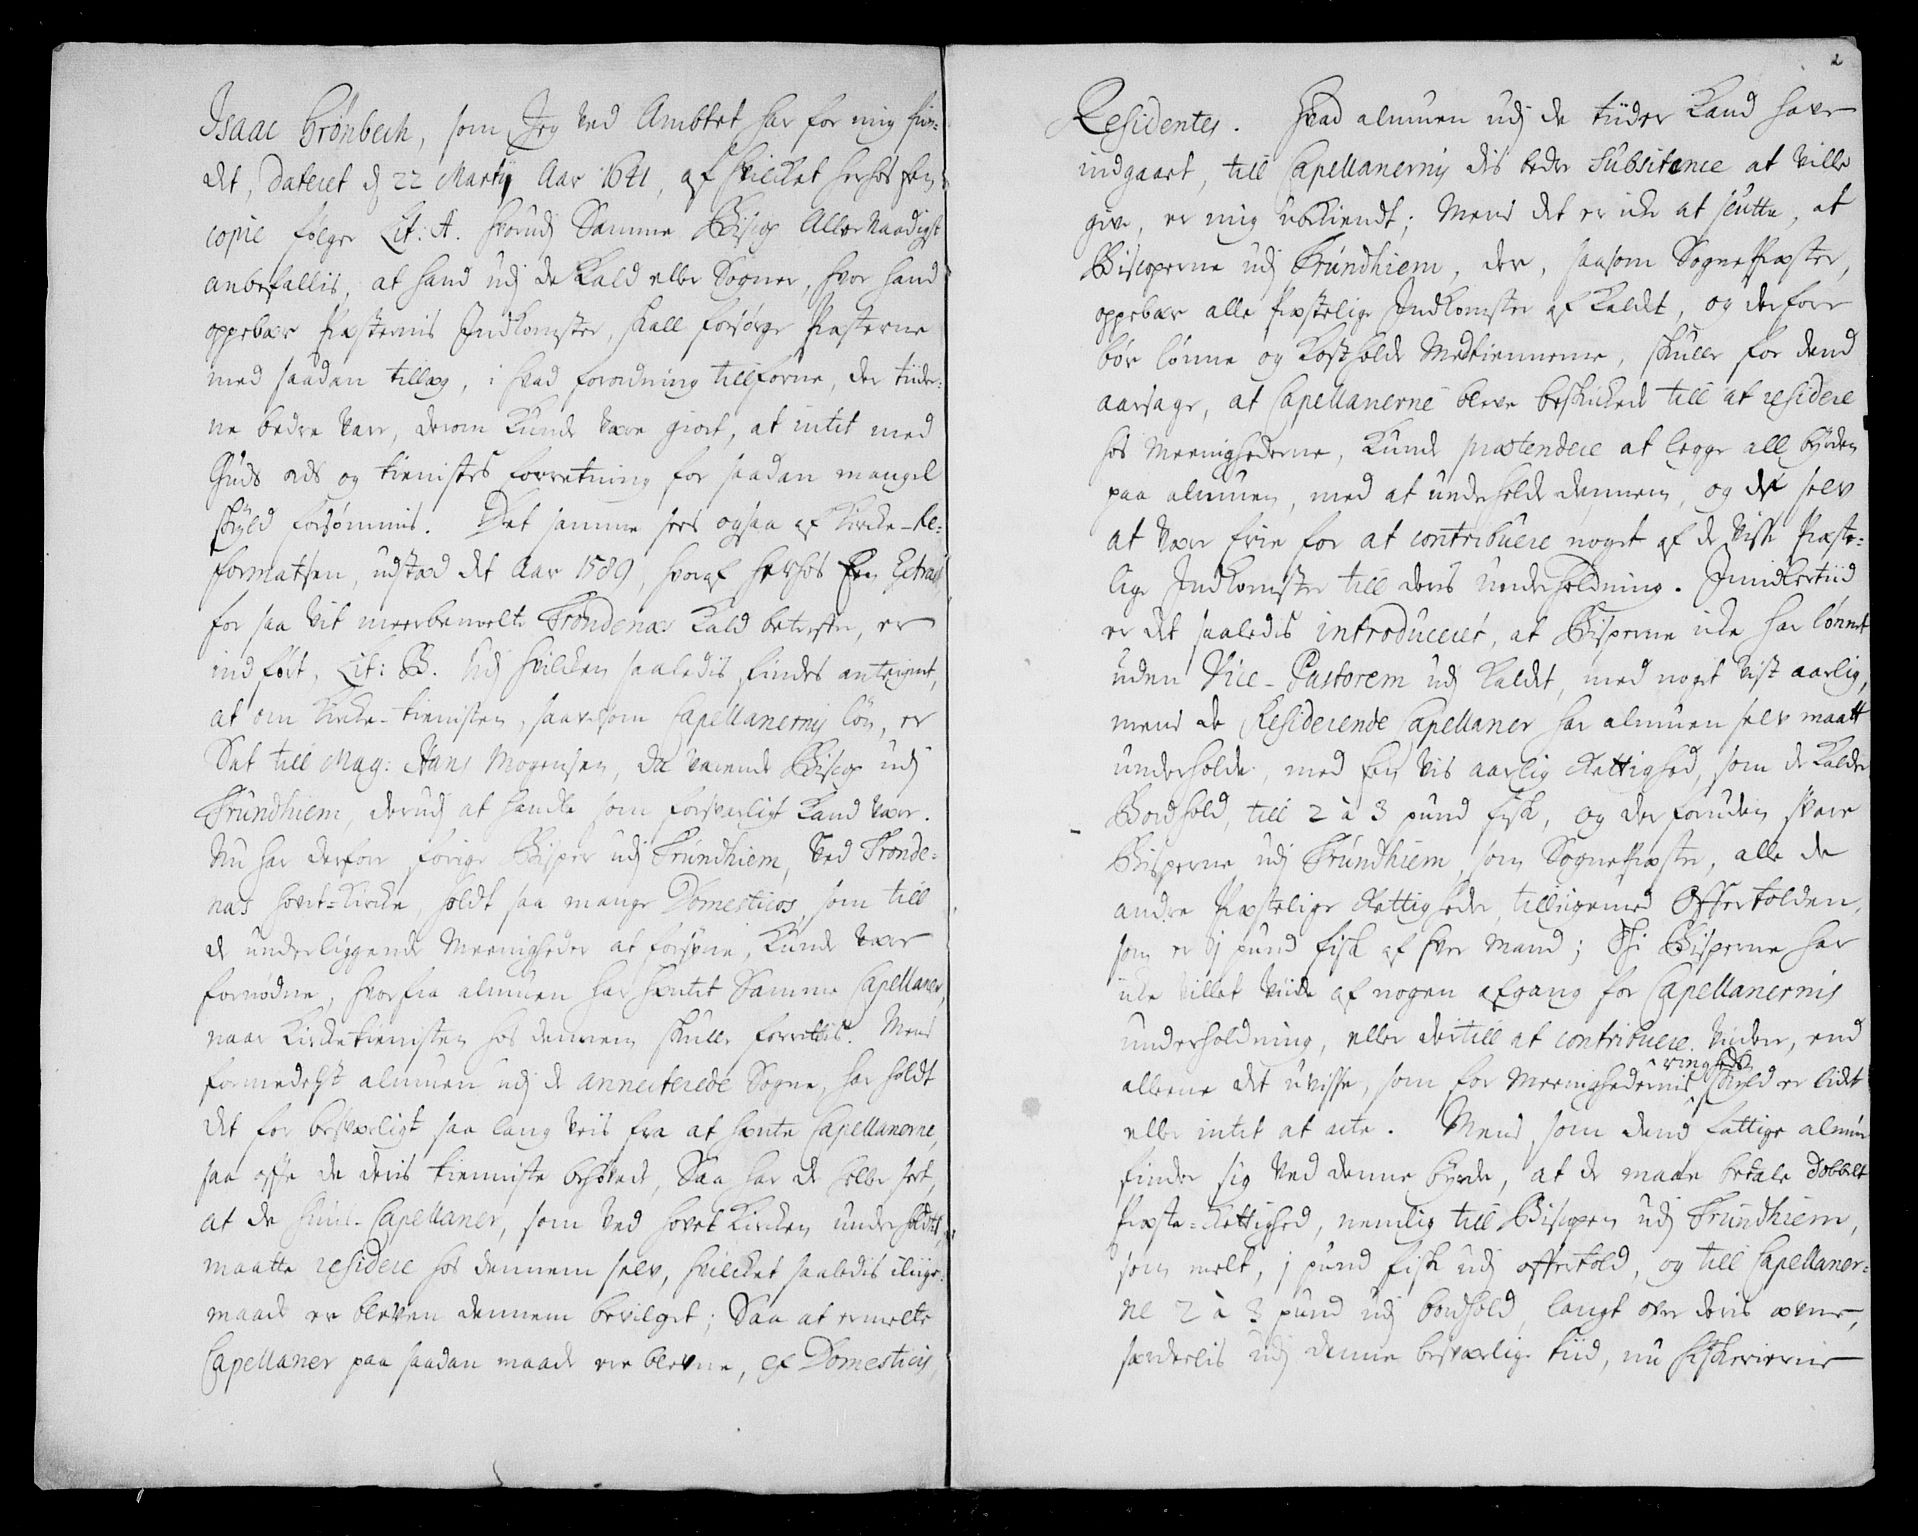 Isaac Grønbech, som Jeg ved Ambtet har for mig fun-
det, dateret d. 22 Martij Aar 1641, af hvilcket herhos en
copie følger Lit: A. hvorudj Samme Biscop Allernaadigst
anbefallis, at hand udj de Kald eller Sogner, hvor hand
oppebær Præsternis Indkomster, skall forsørge Præsterne
med saadan tillæg, i hvad forordning tillforne, der tider-
ne bedre vare, derom kunde være giort, at intet med
Guds ords og tienistes forretning for saadan mangel
skyld forsømmis. Det samme sees ogsaa af Kircke-Re-
formatsen, udstæd det Aar 1589, hvoraf herhos Een Extract
for saa vit meerbemelte Trondenæs Kald betreffer, er
indført, Lit: B. Udj hvilcken saaledis findes antegnet,
at om Kircke-tienisten, saavelsom Capellanernis løn, er
Sat till Mag: Hans Mogensen, da værende Biscop udj
Trundhiem, derudj at handle som forsvarligt kand være.
Nu har derfore forige Bisper udj Trundhiem, ved Tronde-
næs hovet-Kircke, holdt saa mange Domesticos, som till
de underliggende Meenigheder at forsyne, kunde være
fornødne, hvorfra almuen har hæntet Samme Capellaner,
naar Kircketienisten hos dennem skulle forrettis. Mens
formedelst almuen udj de annecterede Sogne, har holdt
det for besværligt saa lang veis fra at hænte Capellanerne,
saa offte de deris tienniste behøvede, Saa har de heller seet,
at de Huus-Capellaner, som ved hovet Kircken underholdtes,
maatte residere hos dennem selv, hvilcket saaledis i liige-
maade er bleven dennem bevilget; Saa at ermelte
Capellaner paa saadan maade ere blevne, af Domesticis,
2
Residentes. Hvad almuen udj de tiider kand have
indgaaet, till Capellanernis dis bedre Subsitence at ville
give, er mig ubekiendt; Mens det er icke at slutte, at
Biscoperne udj Trundhiem, der, saasom SognePræster,
oppebær alle Præstelige Indkomster af Kaldet, og derfore
bør lønne og Kostholde Medtiennerne, skulle for dend
aarsage, at Capellanerne bleve beskickede till at residere
hos Meenighederne, kunde prætendere at legge all byrden
paa almuen, med at underholde dennem, og de selv
at være frie for at contribuere noget af de visse Præste-
lige Indkomster till deris underholdning. Immidlertiid
er det saaledis introduceret, at Bisperne icke har lønnet
uden Vice-Pastorem udj Kaldet, med noget vist aarlig,
mens de Residerende Capellaner har almuen selv maatt
underholde, med een vis aarlig Rettighed, som de Kalder
Bordhold, till 2 à 3 pund fisk, og der foruden svare
Bisperne udj Trundhiem, som SognePræster, alle de
andre Præstelige Rettigheder, tilligemed Offertolden,
som er j pund fisk af hver Mand; Thi Bisperne har
icke villet viide af nogen afgang for Capellanernis
underholdning, eller dertill at contribuere viidere, end
alleene det uvisse, som for Meenighedernis ringheds skyld er lidet
eller intet at acte. Mens, som dend fattige almue
finder sig ved denne byrde, at de maae betale dobbelt
Præste-Rettighed, nemlig till Biscopen udj Trundhiem,
som melt, j pund fisk udj offertold, og till Capellaner-
ne 2 à 3 pund udj bordhold, langt over deris ævne,
særdelis udj denne besværlige tiid, nu fiskerierne